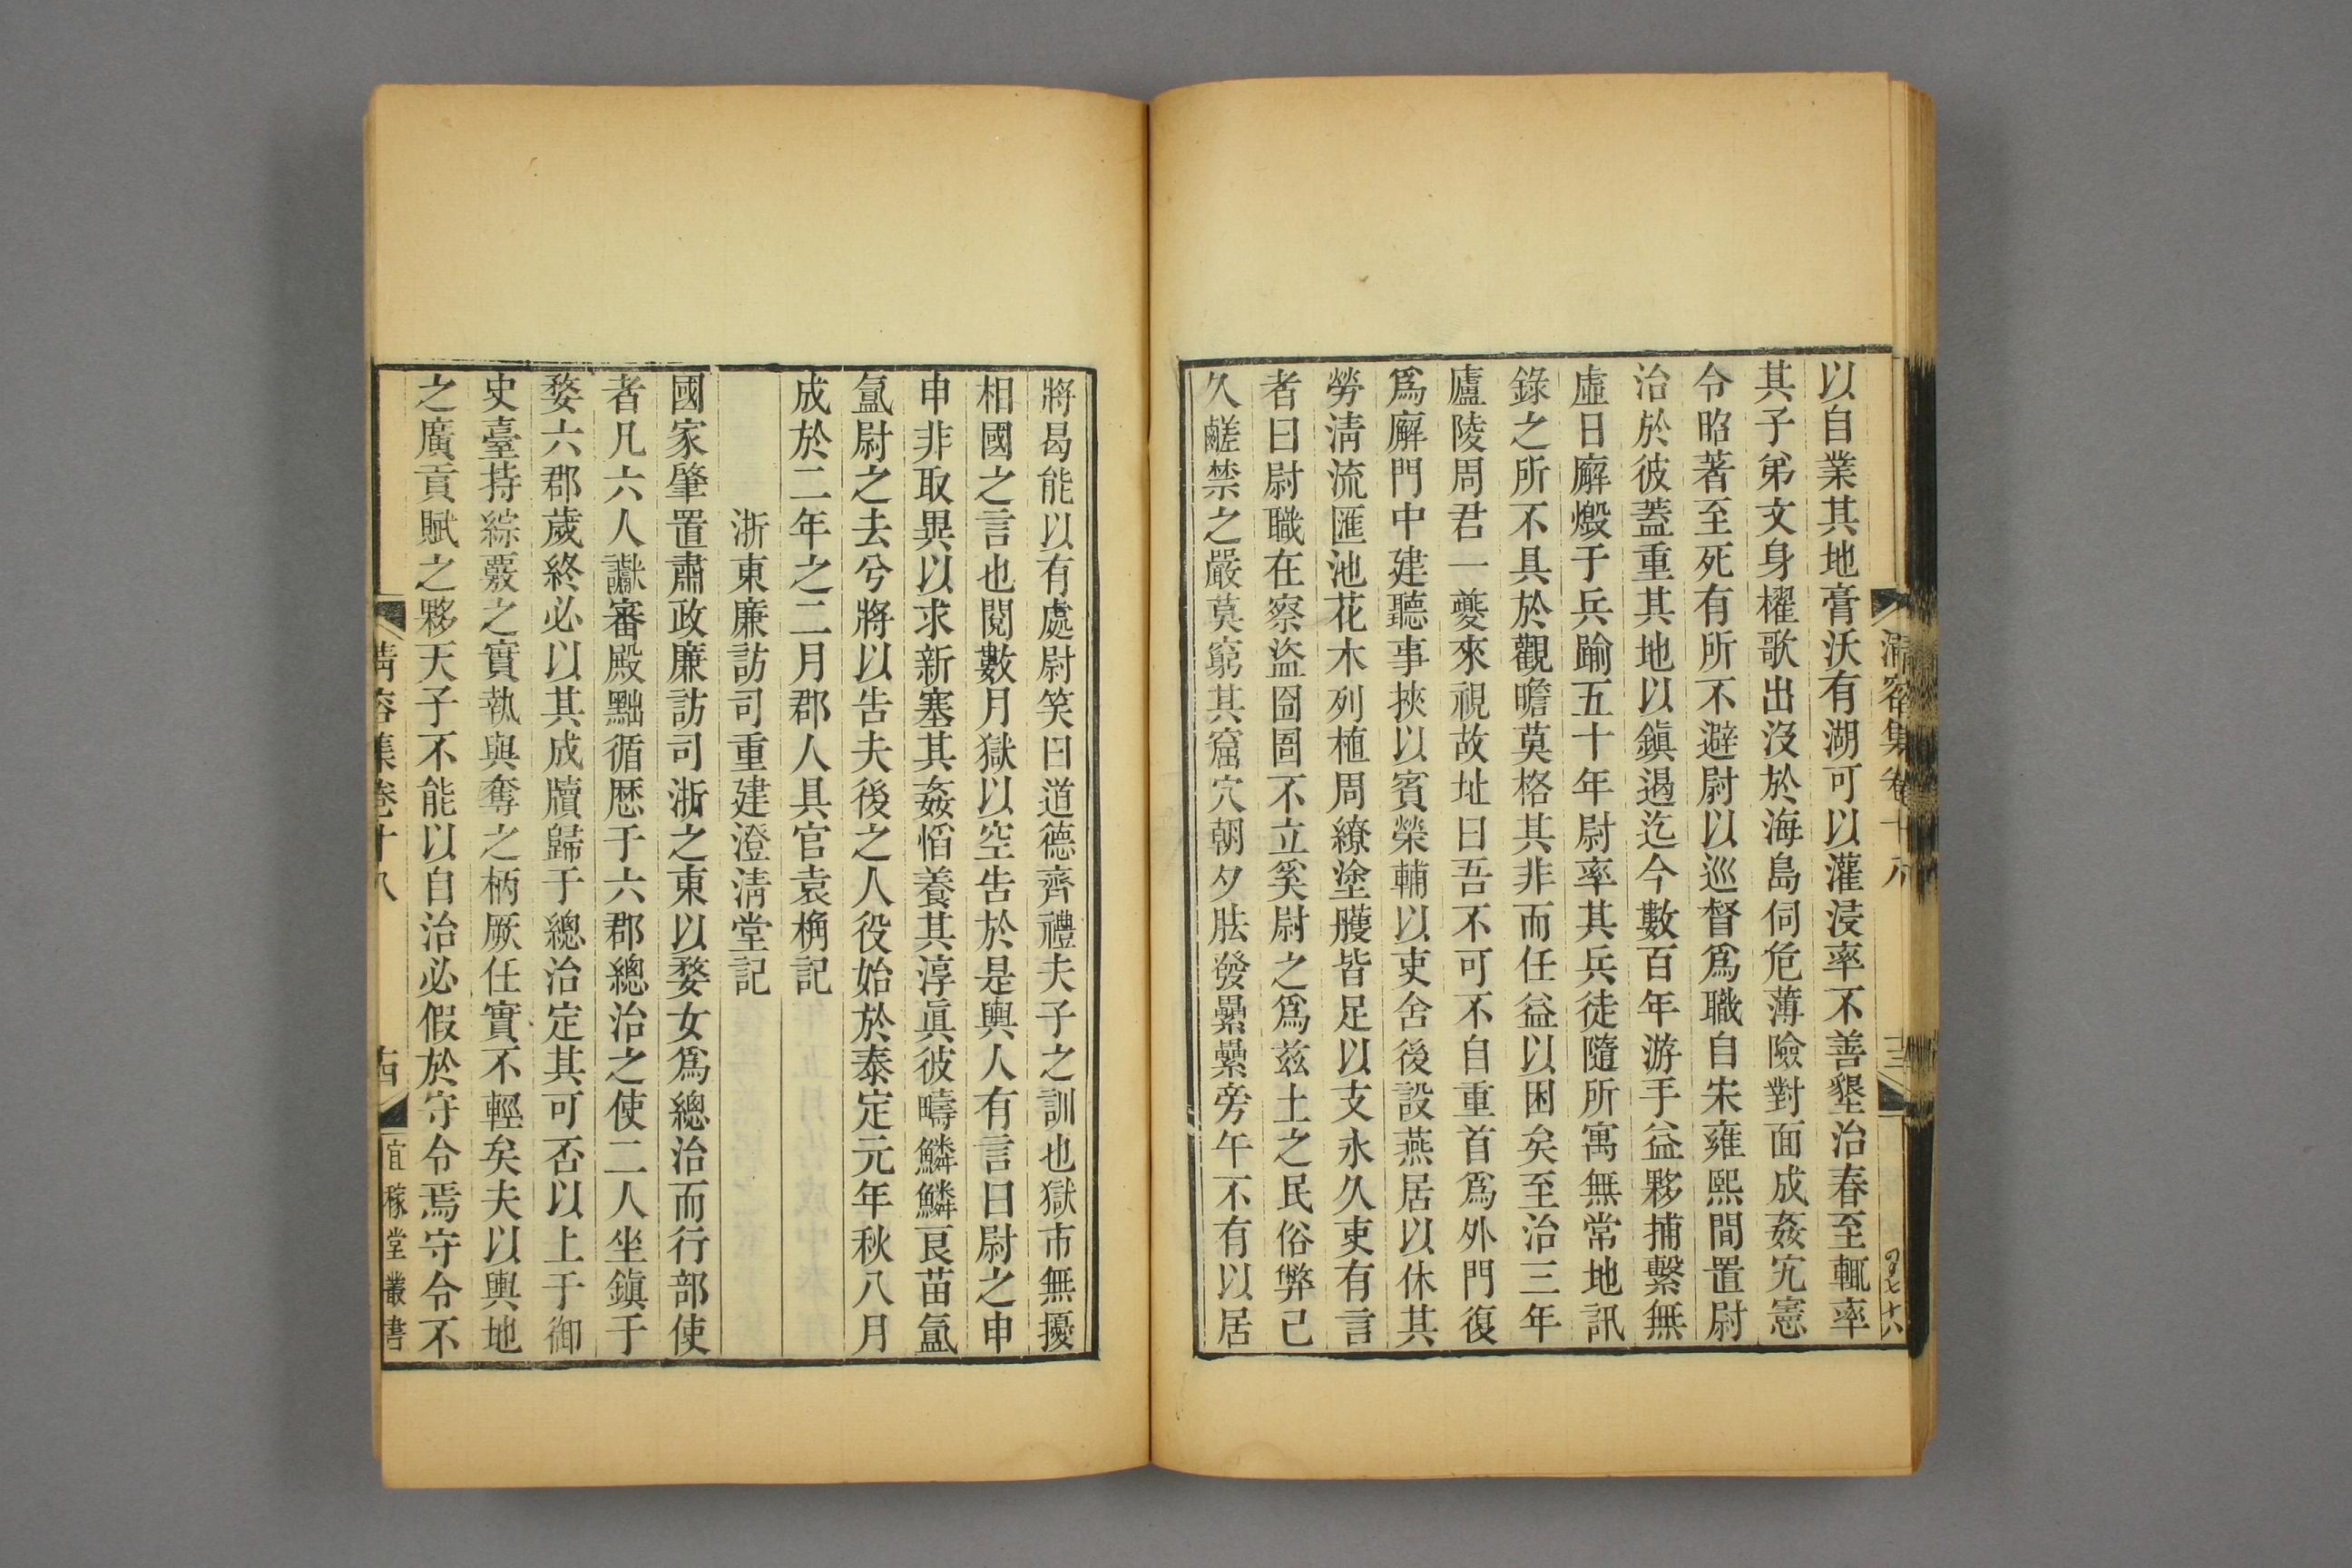 清容集卷十八
以自業其地膏沃有湖可以灌浸率不善墾治春至輒率
其子弟文身櫂歌出沒於海島伺危薄險對面成姦宄憲
令昭著至死有所不避尉以巡督爲職自宋雍熙間置尉
治於彼蓋重其地以鎮遏迄今數百年游手益夥捕繫無
虛日廨燬于兵踰五十年尉率其兵徒隨所寓無常地訊
錄之所不具於觀瞻莫格其非而任益以困矣至治三年
廬陵周君一夔來視故址曰吾不可不自重首爲外門復
爲廨門中建聽事挾以賓榮輔以吏舍後設燕居以休其
勞淸流匯池花木列植周繚塗雘皆足以支永久吏有言
者曰尉職在察盜囹圄不立奚尉之爲茲土之民俗弊已
久鹺禁之嚴莫窮其窟穴朝夕胠發纍纍旁午不有以居
將曷能以有處尉笑曰道德齊禮夫子之訓也獄市無擾
相國之言也閱數月獄以空告於是輿人有言曰尉之申
申非取異以求新塞其姦慆養其淳眞彼疇鱗鱗艮苗氳
氳尉之去兮將以告夫後之人役始於泰定元年秋八月
成於二年之二月郡人具官袁桷記
浙東廉訪司重建澄淸堂記
國家肇置肅政廉訪司浙之東以婺女爲總治而行部使
者凡六人讞審殿黜循歷于六郡總治之使二人坐鎮于
婺六郡歲終必以其成牘歸于總治定其可否以上于御
史臺持綜覈之實執與奪之柄厥任實不輕矣夫以輿地
之廣貢賦之夥天子不能以自治必假於守令焉守令不
清容集卷十八
宜稼堂叢書